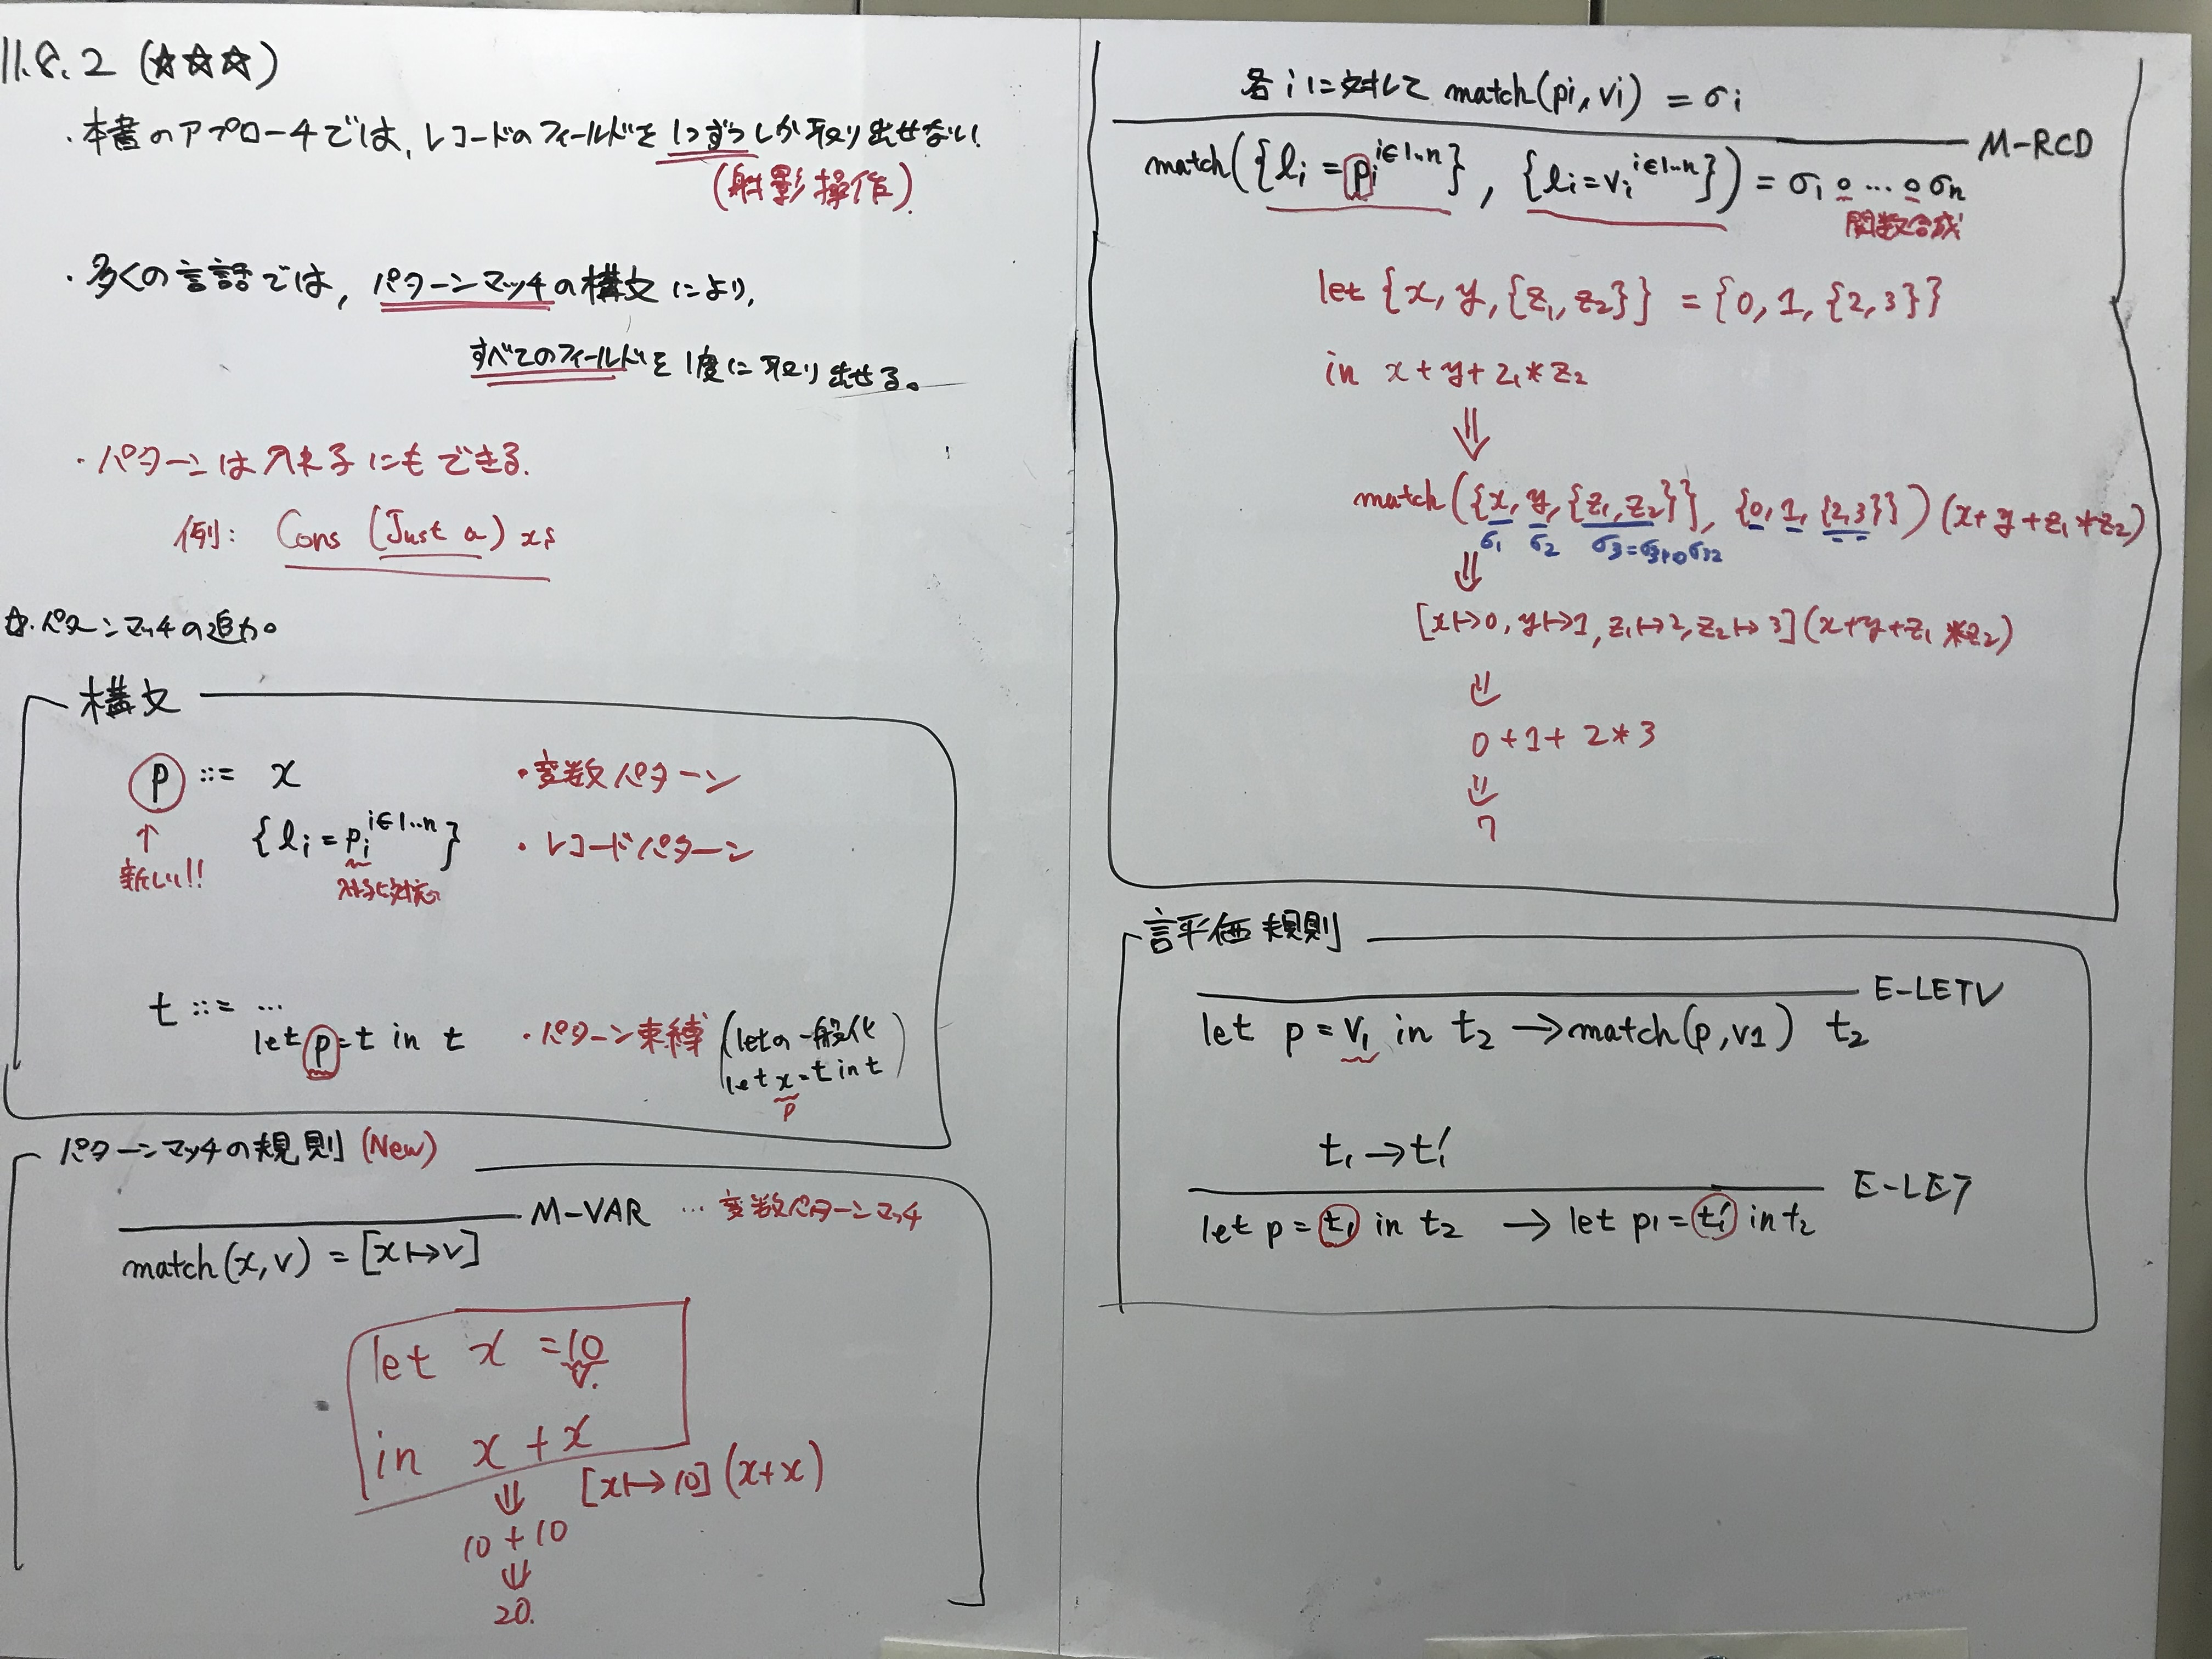 11.8.2 (☆☆☆)
・本書のアプローチでは, レコードのフィールドを1つずつしか取り出せない!
(射影操作).
・多くの言語では, パターンマッチの構文により,
すべてのフィールドを1度に取り出せる。
・パターンは入れ子にもできる.
例: Cons (Just a) xs
☆.パターンマッチの追加。
構文
p ::= x ・変数パターン
{li = pi i∈1..n} ・レコードパターン
↑
新しい!!
t ::= ...
let p = t in t ・パターン束縛 (letの一般化
let x = t in t)
p
パターンマッチの規則 (New)
M-VAR … 変数パターンマッチ
match(x, v) = [x↦v]
let x = 10
v.
in x + x
⇓ [x↦10](x+x)
10 + 10
⇓
20.
各iに対して match(pi, vi) = σi
M-RCD
match({li = pi i∈1..n}, {li = vi i∈1..n}) = σ1 ∘ … ∘ σn
関数合成
let {x, y, {z1, z2}} = {0, 1, {2, 3}}
in x + y + z1 * z2
⇓
match({x, y, {z1, z2}}, {0, 1, {2, 3}}) (x + y + z1 * z2)
σ1 σ2 σ3 = σ31∘σ32
⇓
[x↦0, y↦1, z1↦2, z2↦3](x+y+z1 * z2)
⇓
0 + 1 + 2 * 3
⇓
7
評価規則
E-LETV
let p = v1 in t2 → match(p, v1) t2
t1 → t1′
E-LET
let p = t1 in t2 → let p1 = t1′ in t2